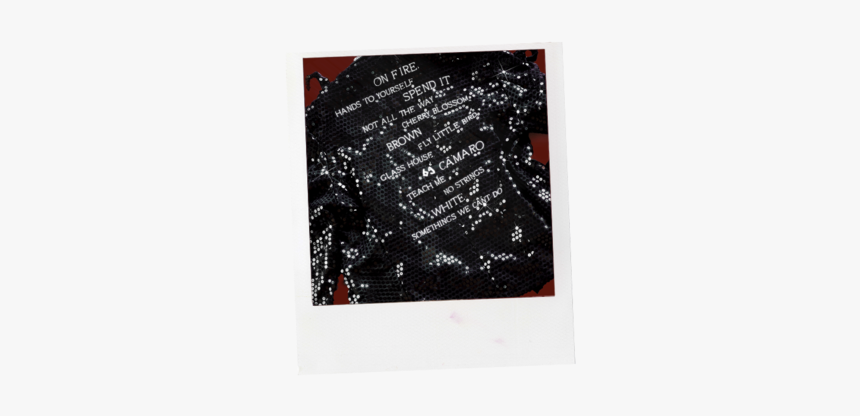 ON FIRE.
HANDS TO YOURSELF
SPEND IT
NOT ALL THE WAY
CHERRY BLOSSOM
BROWN
FLY LITTLE BIRD
GLASS HOUSE
69 CAMARO
TEACH ME
NO STRINGS
WHITE
SOMETHINGS WE CANT DO